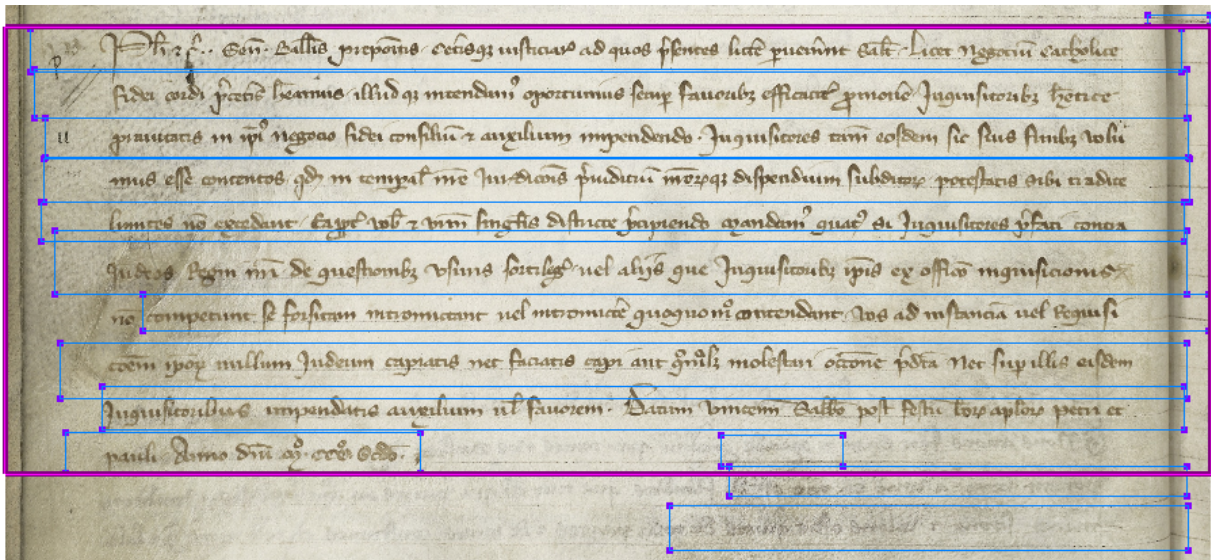 Ph̅s et c̅. Sen̅. Ball̅is prepo̅itis cet̅isq̨ iusticiar̅ ad quos p̅sentes litt̅e puen̅int Sal̅t. Licet Negociu̅ catholice
fidei cordi p̅cet̅is h̅eamus illud q̨ intendam⁹ oportunius semp̅ favorib̨ efficacit̅ p̅move̅ Inquisitorib̨ h̅etice
prauitatis in ip̅o negocio fidei consiliu̅ ⁊ auxilium impendendo. Inquisitores tam̅ eosdem sic suis finib̨ volu
mus esse contentos qd̅ in temp̅al̅ n̅re Jur̅dico̅is p̅iudiciu̅ dispendium subditor̅ potestatis sibi tradite
limites no̅ excedant. Eapp̅t̅ vob̅ ⁊ vr̅m sing̅lis districte p̅cipiendo mandam⁹ quat⁹ si Inquisitores p̅fati contra
Judeos Regni n̅ri de questionib̨ usuris sortileg̅ vel aliis que Inquisitorib̨ ip̅is ex offic̅o inquisicionis
no̅ competunt se forsitan intromittant vel intromitt̅e quoquom̊ contendant. vos ad instancia̅ vel Requisi
co̅em ip̅or̅ nullum Judeum capiatis nec faciatis capi aut molestari occ̅one p̅d̅ta Nec sup̅ illis eisdem
Inquisitoribus impendatis auxilium vl̅ favorem. Datum vincenn̅ Sabb̅o post festu̅ b̅or̅ ap̅lor̅ petri et
pauli Anno dn̅i M̊. CCC̊. Sc̅do.